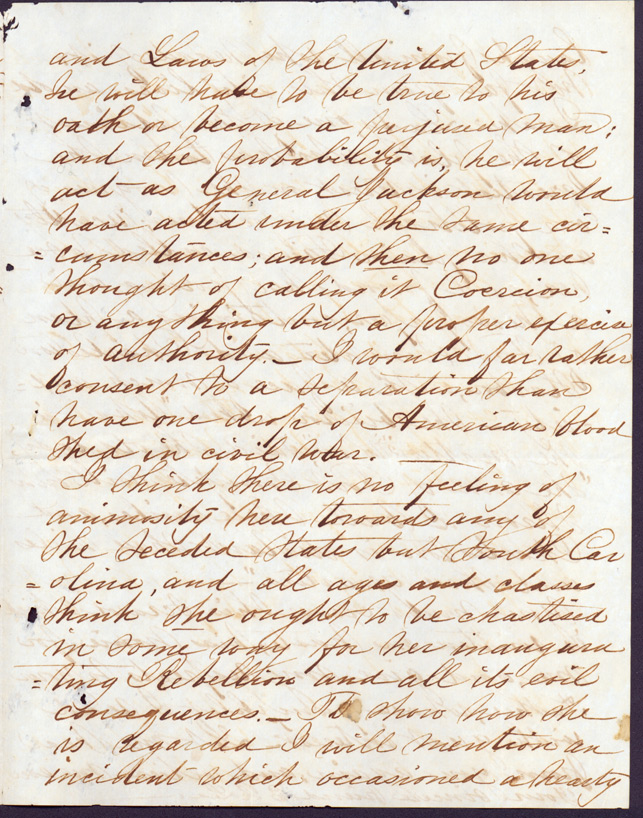 and Laws of the United States,
he will have to be true to his
oath or become a perjured man;
and the probability is, he will
act as General Jackson would
have acted under the same cir=
=cumstances; and then no one
thought of calling it Coercion,
or any thing but a proper exercise
of authority._ I would far rather
consent to a separation than
have one drop of American blood
shed in civil war.
I think there is no feeling of
animosity here towards any of
the seceded States but South Car
=olina, and all ages and classes
think she ought to be chastised
in some way for her inaugura
=ting Rebellion and all its evil
consequences._ To show how she
is regarded I will mention an
incident which occasioned a hearty